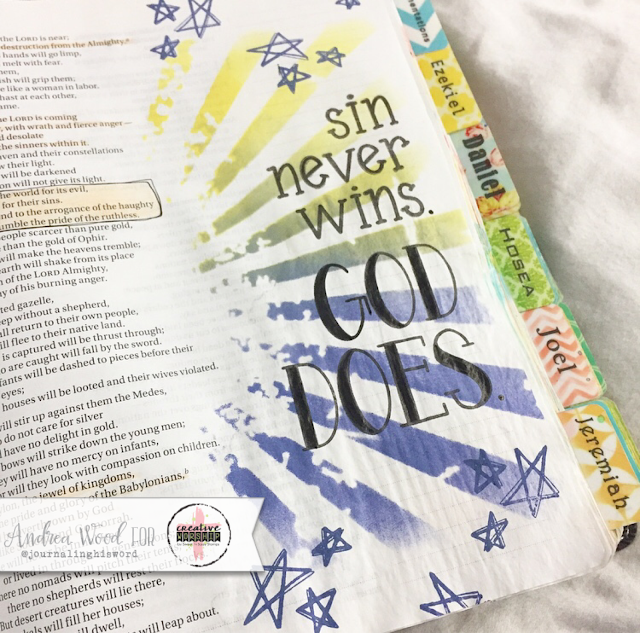 the LORD is near;
destruction from the Almighty.
hands will go limp,
melt with fear.
them,
ish will grip them;
e like a woman in labor.
hast at each other,
ame.
the LORD is coming
, with wrath and fierce anger—
d desolate
the sinners within it.
aven and their constellations
w their light.
will be darkened
on will not give its light.
the world for its evil,
for their sins.
nd to the arrogance of the haughty
umble the pride of the ruthless.
people scarcer than pure gold,
than the gold of Ophir.
will make the heavens tremble;
earth will shake from its place
h of the LORD Almighty,
ay of his burning anger.
ted gazelle,
eep without a shepherd,
ll return to their own people,
ll flee to their native land.
is captured will be thrust through;
o are caught will fall by the sword.
nfants will be dashed to pieces before their
eyes;
houses will be looted and their wives violated.
will stir up against them the Medes,
o do not care for silver
d have no delight in gold.
bows will strike down the young men;
ey will have no mercy on infants,
or will they look with compassion on children.
lon, the jewel of kingdoms,
the pride and glory of the Babylonians,
there no nomads will
there no shepherds will rest
But desert creatures will lie there,
will fill her houses;
will dwell,
will leap about.
sin
never
wins.
GOD
DOES.
mentations
Ezekiel
Daniel
HOSEA
Joel
Jeremiah
Andrea Wood FOR
@journalinghisword
creative
WORSHIP